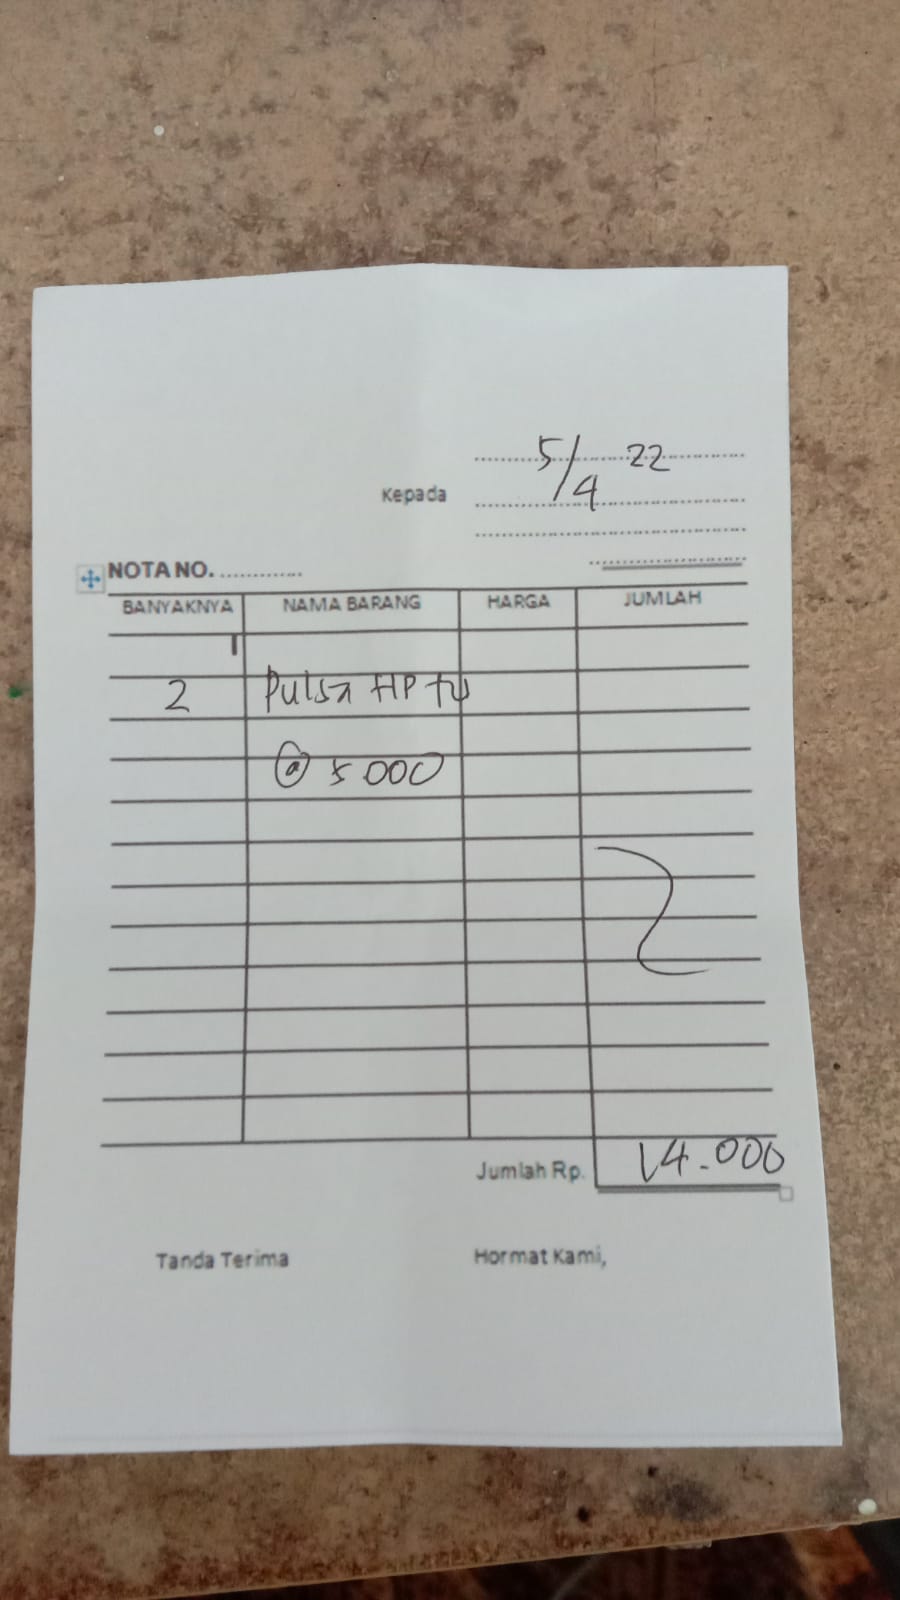 5/4 22
Kepada
NOTA NO. ............
BANYAKNYA NAMA BARANG HARGA JUMLAH
2 Pulsa HP tu
@ 5000
Jumlah Rp. 14.000
Tanda Terima Hormat Kami,